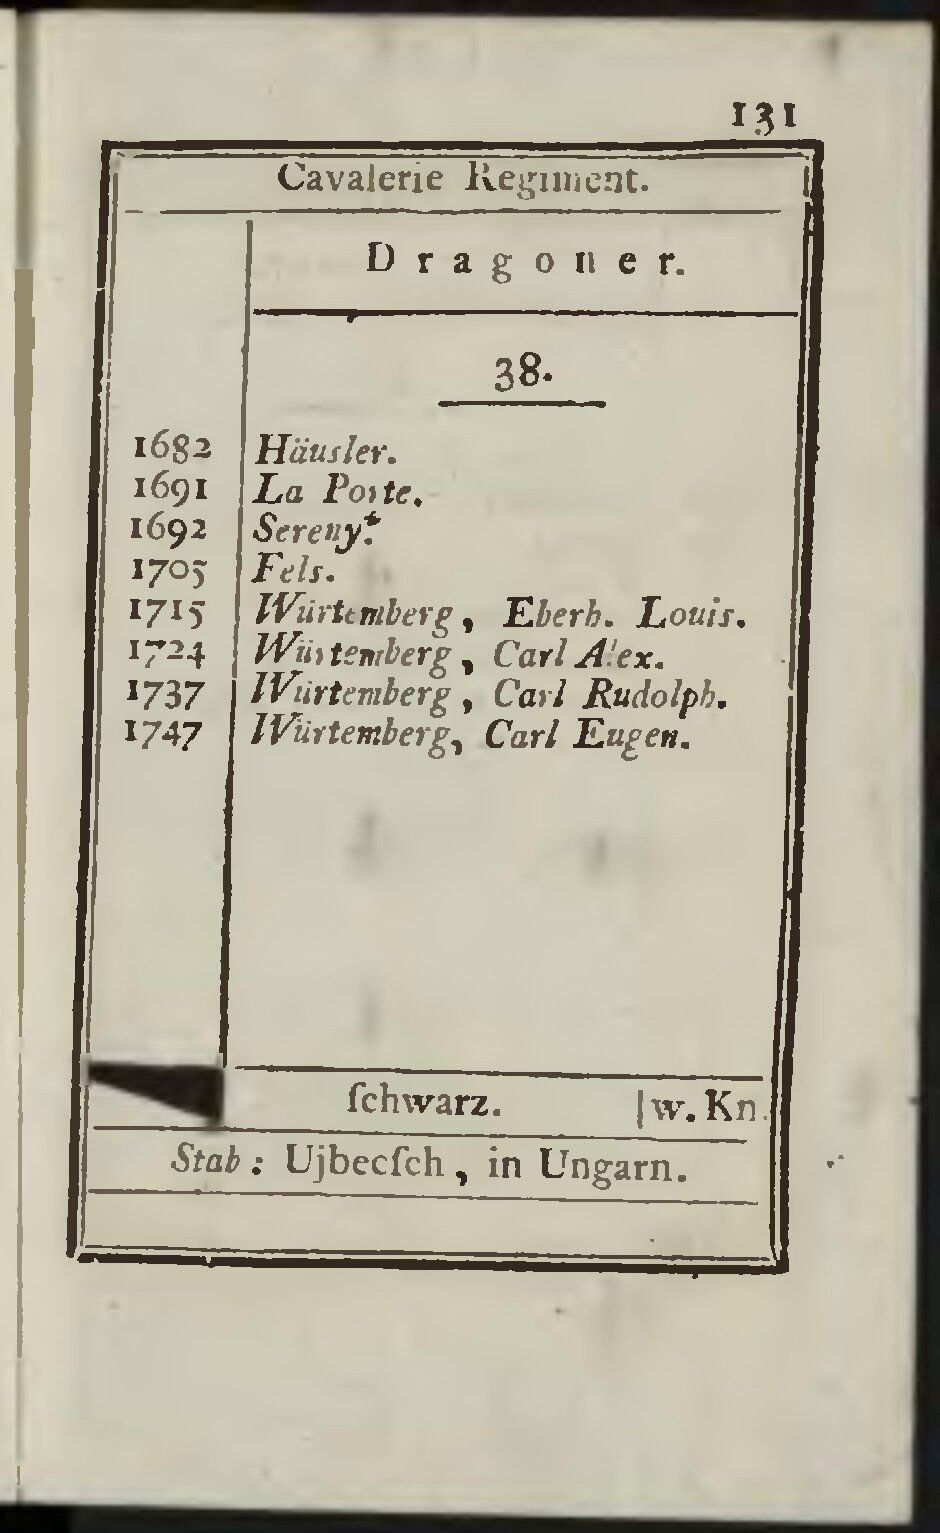 131
Cavalerie Regiment.
Dragoner.
38.
1682 Häusler.
1691 La Porte.
1692 Sereny.*
1705 Fels.
1715 Würtemberg, Eberh. Louis.
1724 Würtemberg, Carl Alex.
1737 Würtemberg, Carl Rudolph.
1747 Würtemberg, Carl Eugen.
ſchwarz. | w. Kn.
Stab: Ujbecſch, in Ungarn.